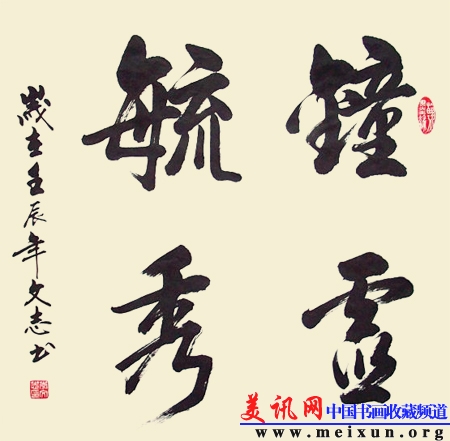 鐘靈
毓秀
歲在壬辰年文志书
美讯网 中国书画收藏频道
www.meixun.org